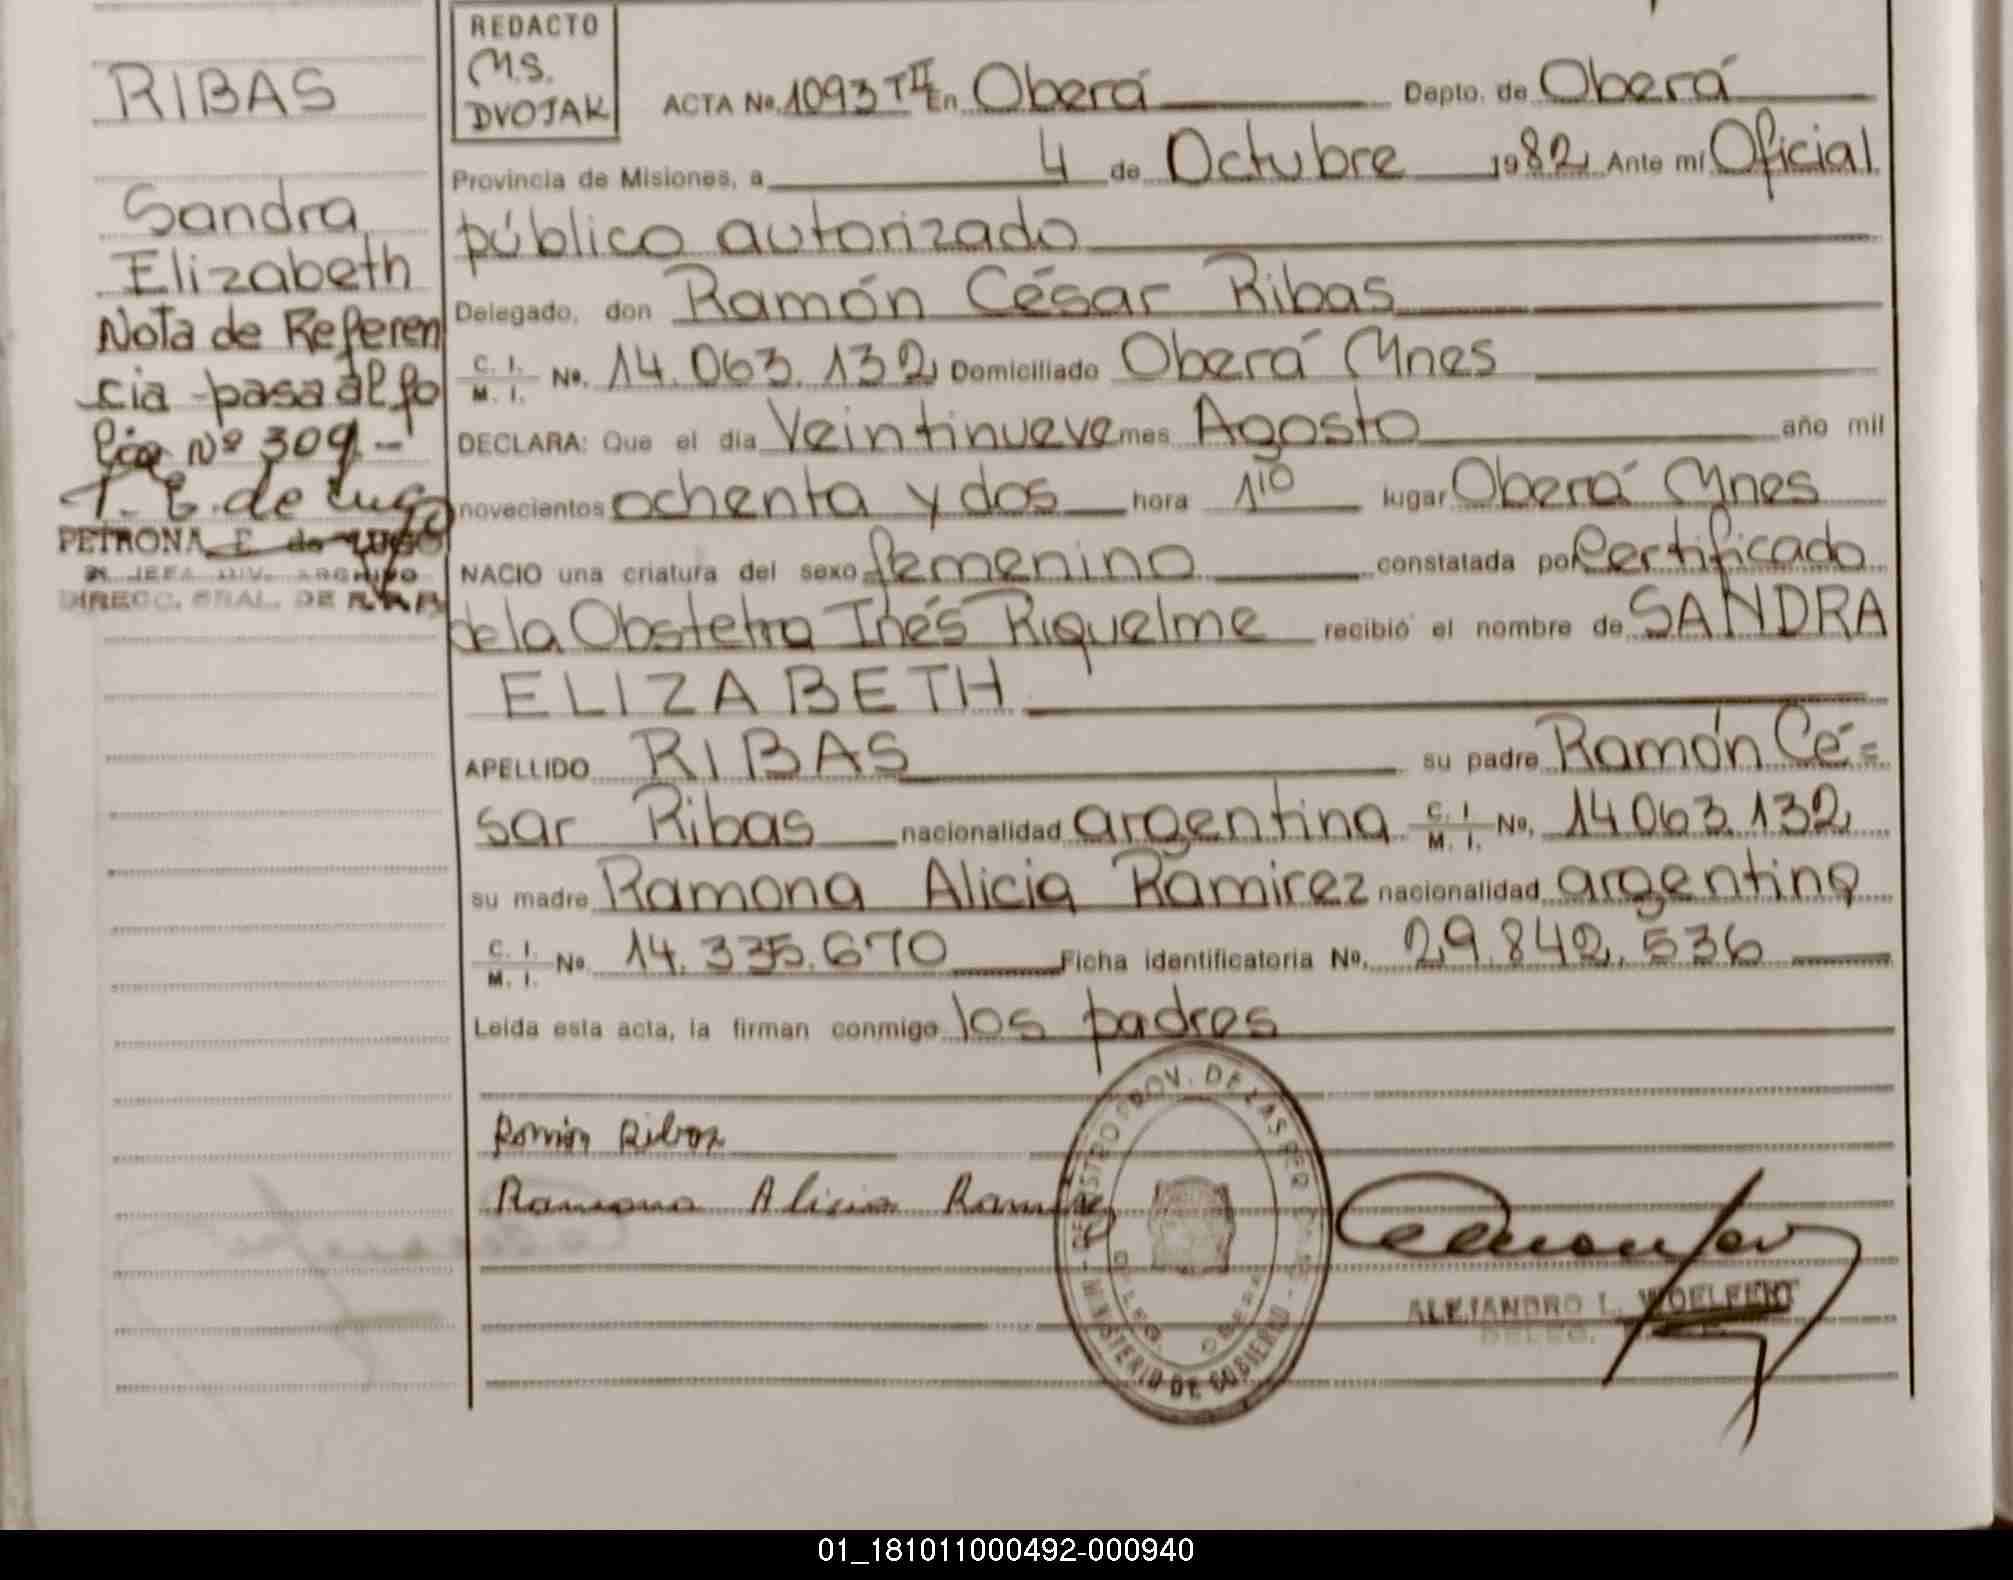 RIBAS
Sandra
Elizabeth
Nota de Referen
cia pasa al fo
lio Nº 309.-
P. E. de Lugo
PETRONA E. de LUGO
JEFA DIV. ARCHIVO
DIRECC. GRAL. DE R.P.P.
REDACTO
M.S.
DVOJAK
ACTA No. 1093 TII En Oberá Depto. de Oberá
Provincia de Misiones, a 4 de Octubre 1982 Ante mí Oficial
público autorizado
Delegado, don Ramón César Ribas
C. I. M. I. No. 14.063.132 Domiciliado Oberá Mnes
DECLARA: Que el día Veintinueve mes Agosto año mil
novecientos ochenta y dos hora 1¹⁰ lugar Oberá Mnes
NACIO una criatura del sexo femenino constatada por Certificado
de la Obstetra Inés Riquelme recibió el nombre de SANDRA
ELIZABETH
APELLIDO RIBAS su padre Ramón Cé=
sar Ribas nacionalidad argentina C. I. M. I. No. 14.063.132
su madre Ramona Alicia Ramirez nacionalidad argentina
C. I. M. I. No. 14.335.670 Ficha identificatoria No. 29.842.536
Leída esta acta, la firman conmigo los padres
Ramón Ribas
Ramona Alicia Ramirez
REGISTRO PROV. DE LAS PER
MINISTERIO DE GOBIERNO
DELEG. OBERA
ALEJANDRO L. WOELFERT
DELEG.
01_181011000492-000940